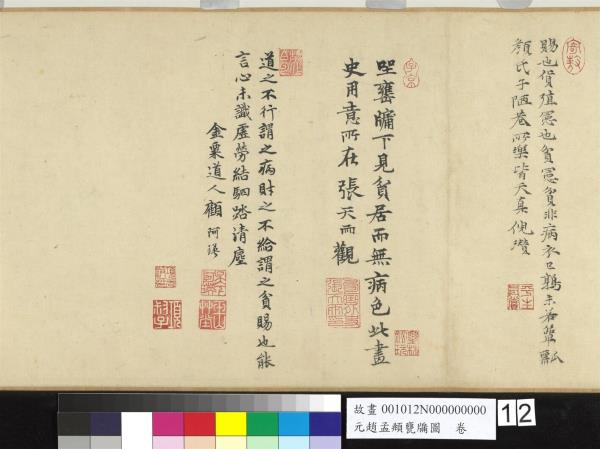 賜也貨殖憲也貧憲貧非病衣已鶉未若簞瓢
顏氏子陋巷所樂皆天真倪瓚
坐甕牖下見貧居而無病色此畫
史用意所在張天雨觀
道之不行謂之病財之不給謂之貧賜也能
言心未識虛勞結駟踏清塵
金粟道人顧阿瑛
故畫 001012N000000000
元趙孟頫甕牖圖 卷
12